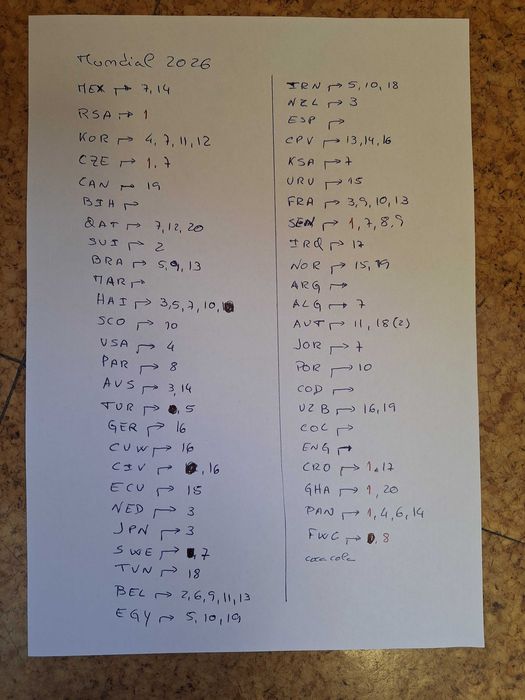 Mundial 2026
MEX → 7, 14
RSA → 1
KOR → 4, 7, 11, 12
CZE → 1, 7
CAN → 19
BIH →
QAT → 7, 12, 20
SUI → 2
BRA → 5, 9, 13
MAR →
HAI → 3, 5, 7, 10,
SCO → 10
USA → 4
PAR → 8
AUS → 3, 14
TUR → , 5
GER → 16
CUW → 16
CIV → , 16
ECU → 15
NED → 3
JPN → 3
SWE → , 7
TUN → 18
BEL → 2, 6, 9, 11, 13
EGY → 5, 10, 19
IRN → 5, 10, 18
NZL → 3
ESP →
CPV → 13, 14, 16
KSA → 7
URU → 15
FRA → 3, 9, 10, 13
SEN → 1, 7, 8, 9
IRQ → 17
NOR → 15, 19
ARG →
ALG → 7
AUT → 11, 18 (2)
JOR → 7
POR → 10
COD →
UZB → 16, 19
COL →
ENG →
CRO → 1, 17
GHA → 1, 20
PAN → 1, 4, 6, 14
FWC → , 8
coca cola